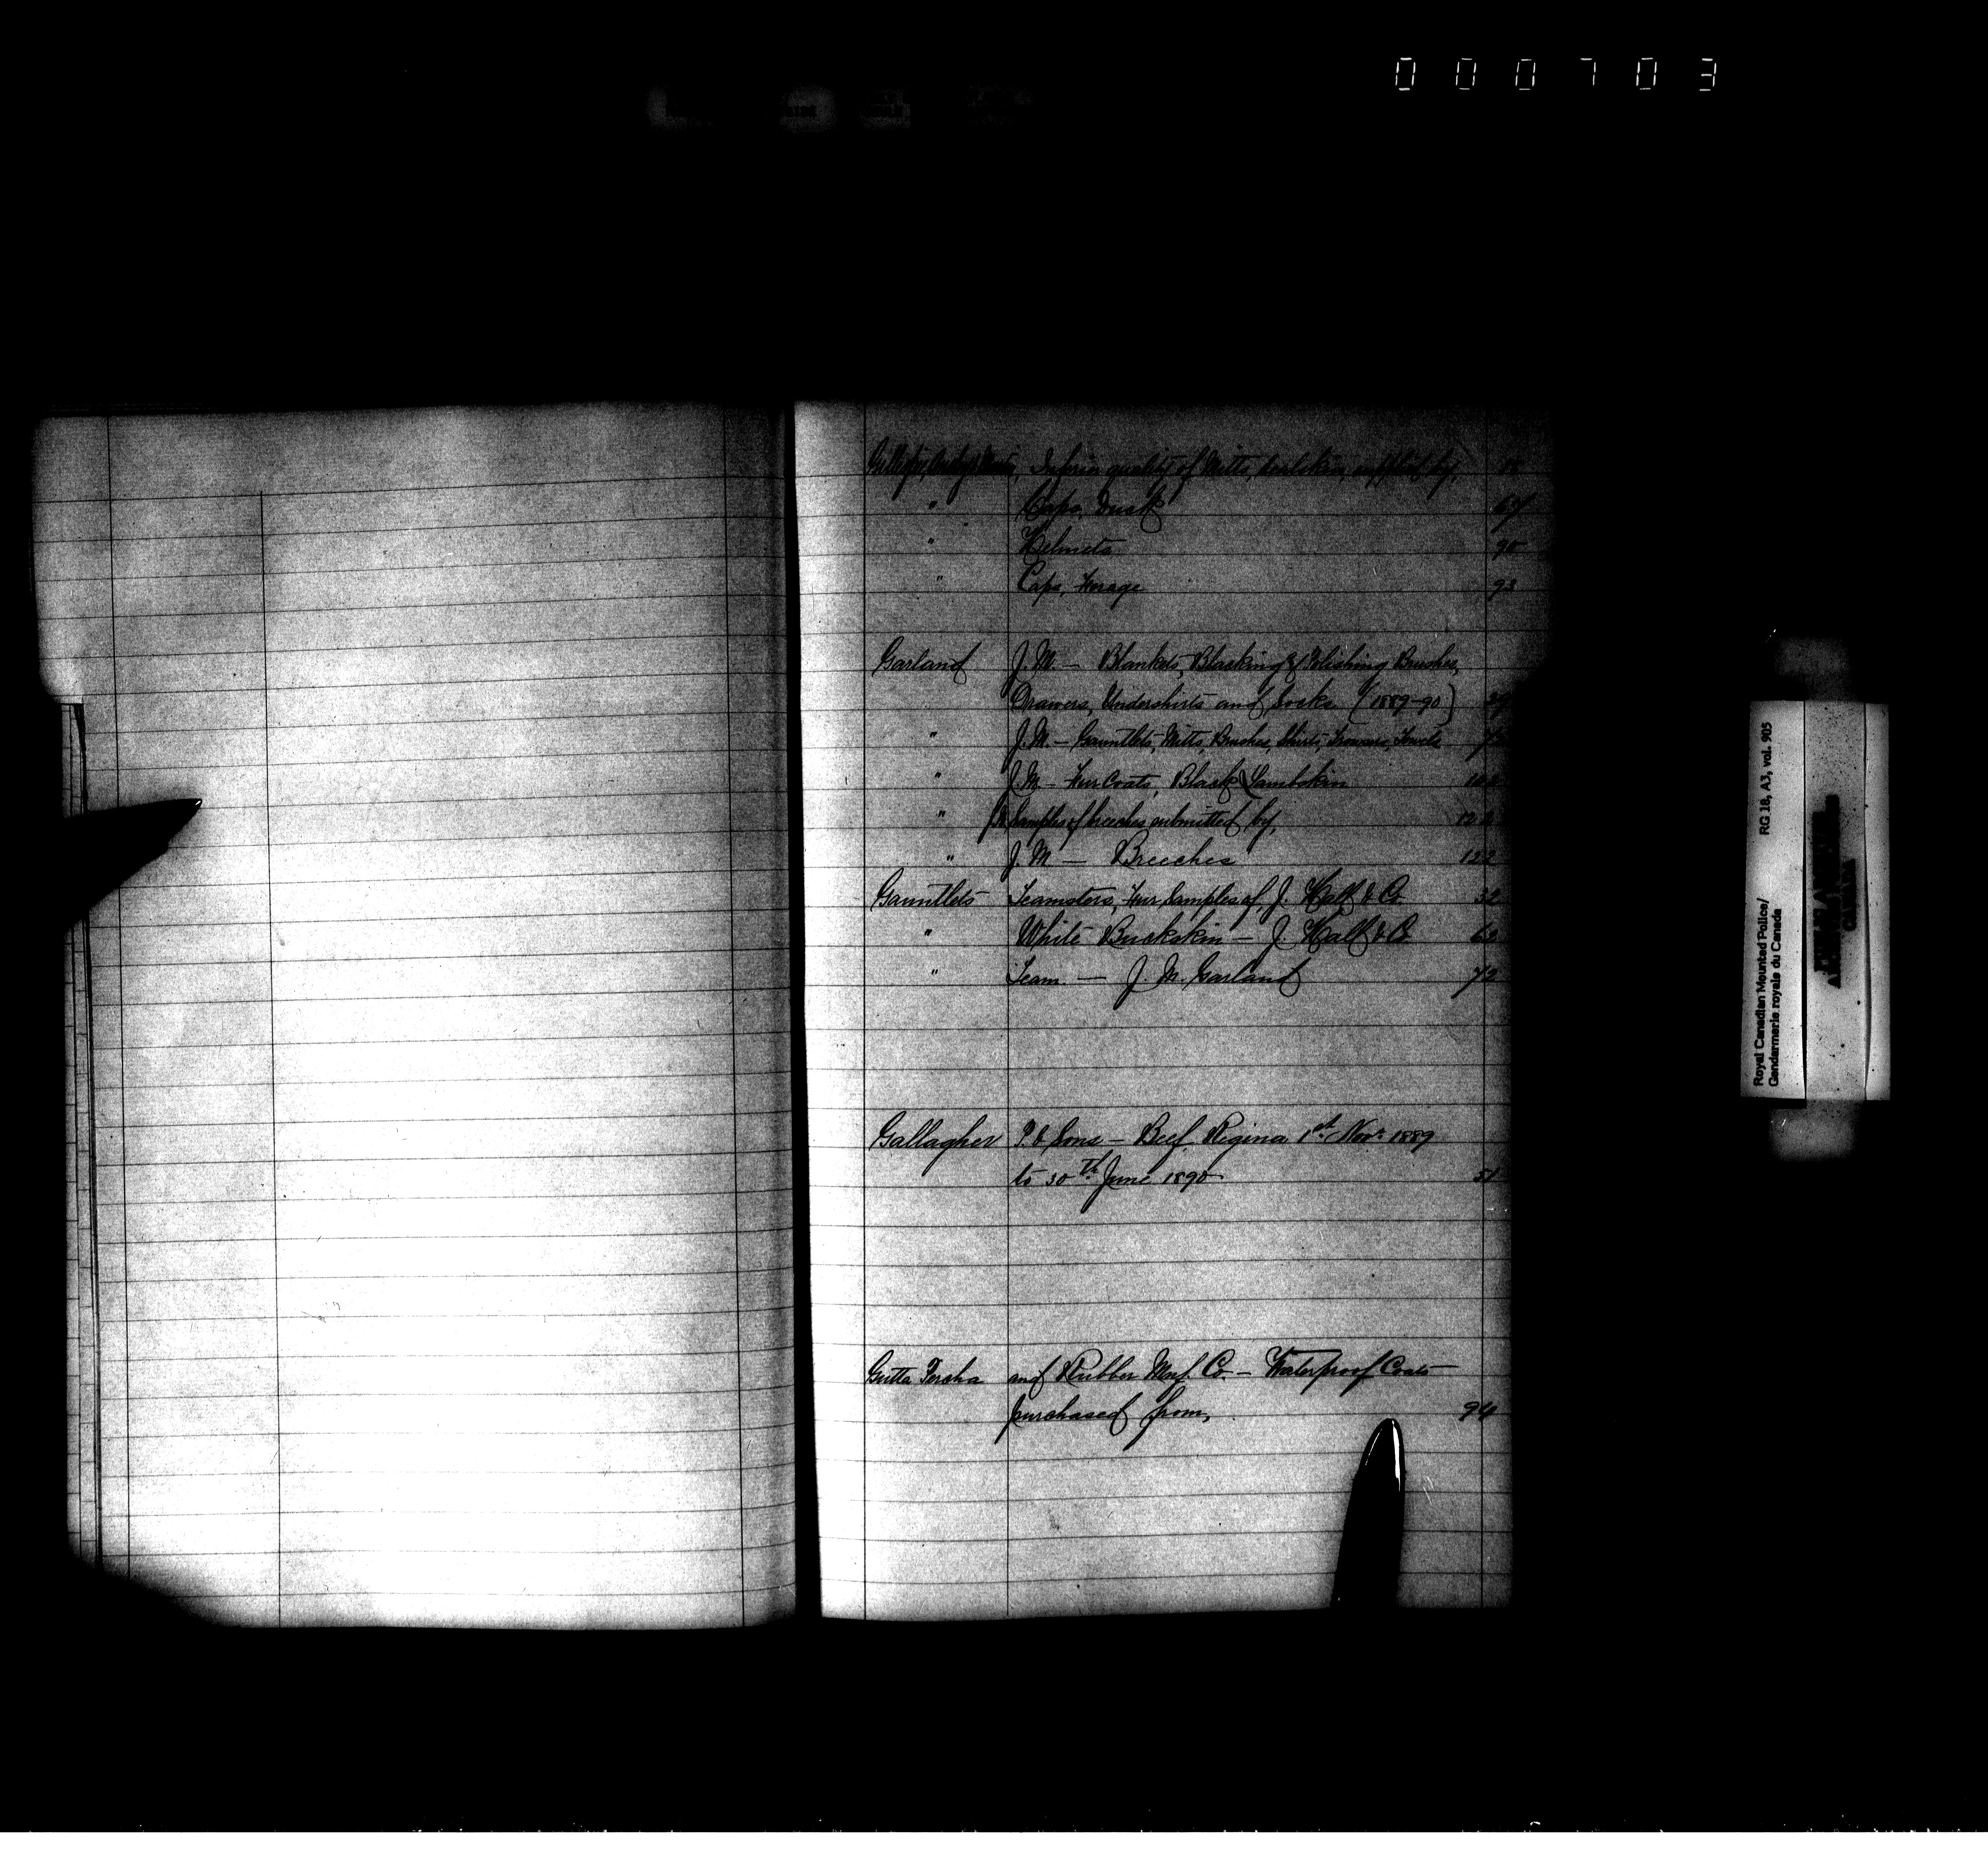 000703
Inferior quality of Mitts, supplied by,
" Caps, Dusk
" Helmets 90
" Caps, Forage 93
Garland J. M. — Blankets, Blacking & Polishing Brushes,
Drawers, Undershirts and Socks (1889-90)
" J. M. — Gauntlets, Mitts, Brushes, Shirts, Trousers, Towels
" J. M. — Fur Coats, Black Lambskin
" Samples of breeches submitted by,
" J. M — Breeches 122
Gauntlets Teamsters, Fur, Samples of, J. Hall & Co. 32
" White Buckskin — J. Hall & Co
" Team. — J. M. Garland 72
Gallagher P. & Sons — Beef, Regina 1st Novr 1889
to 30th June 1890 51
Gutta Percha and Rubber Manf. Co. — Waterproof Coats
purchased from, 94
Royal Canadian Mounted Police/ RG 18, A3, vol. 905
Gendarmerie royale du Canada